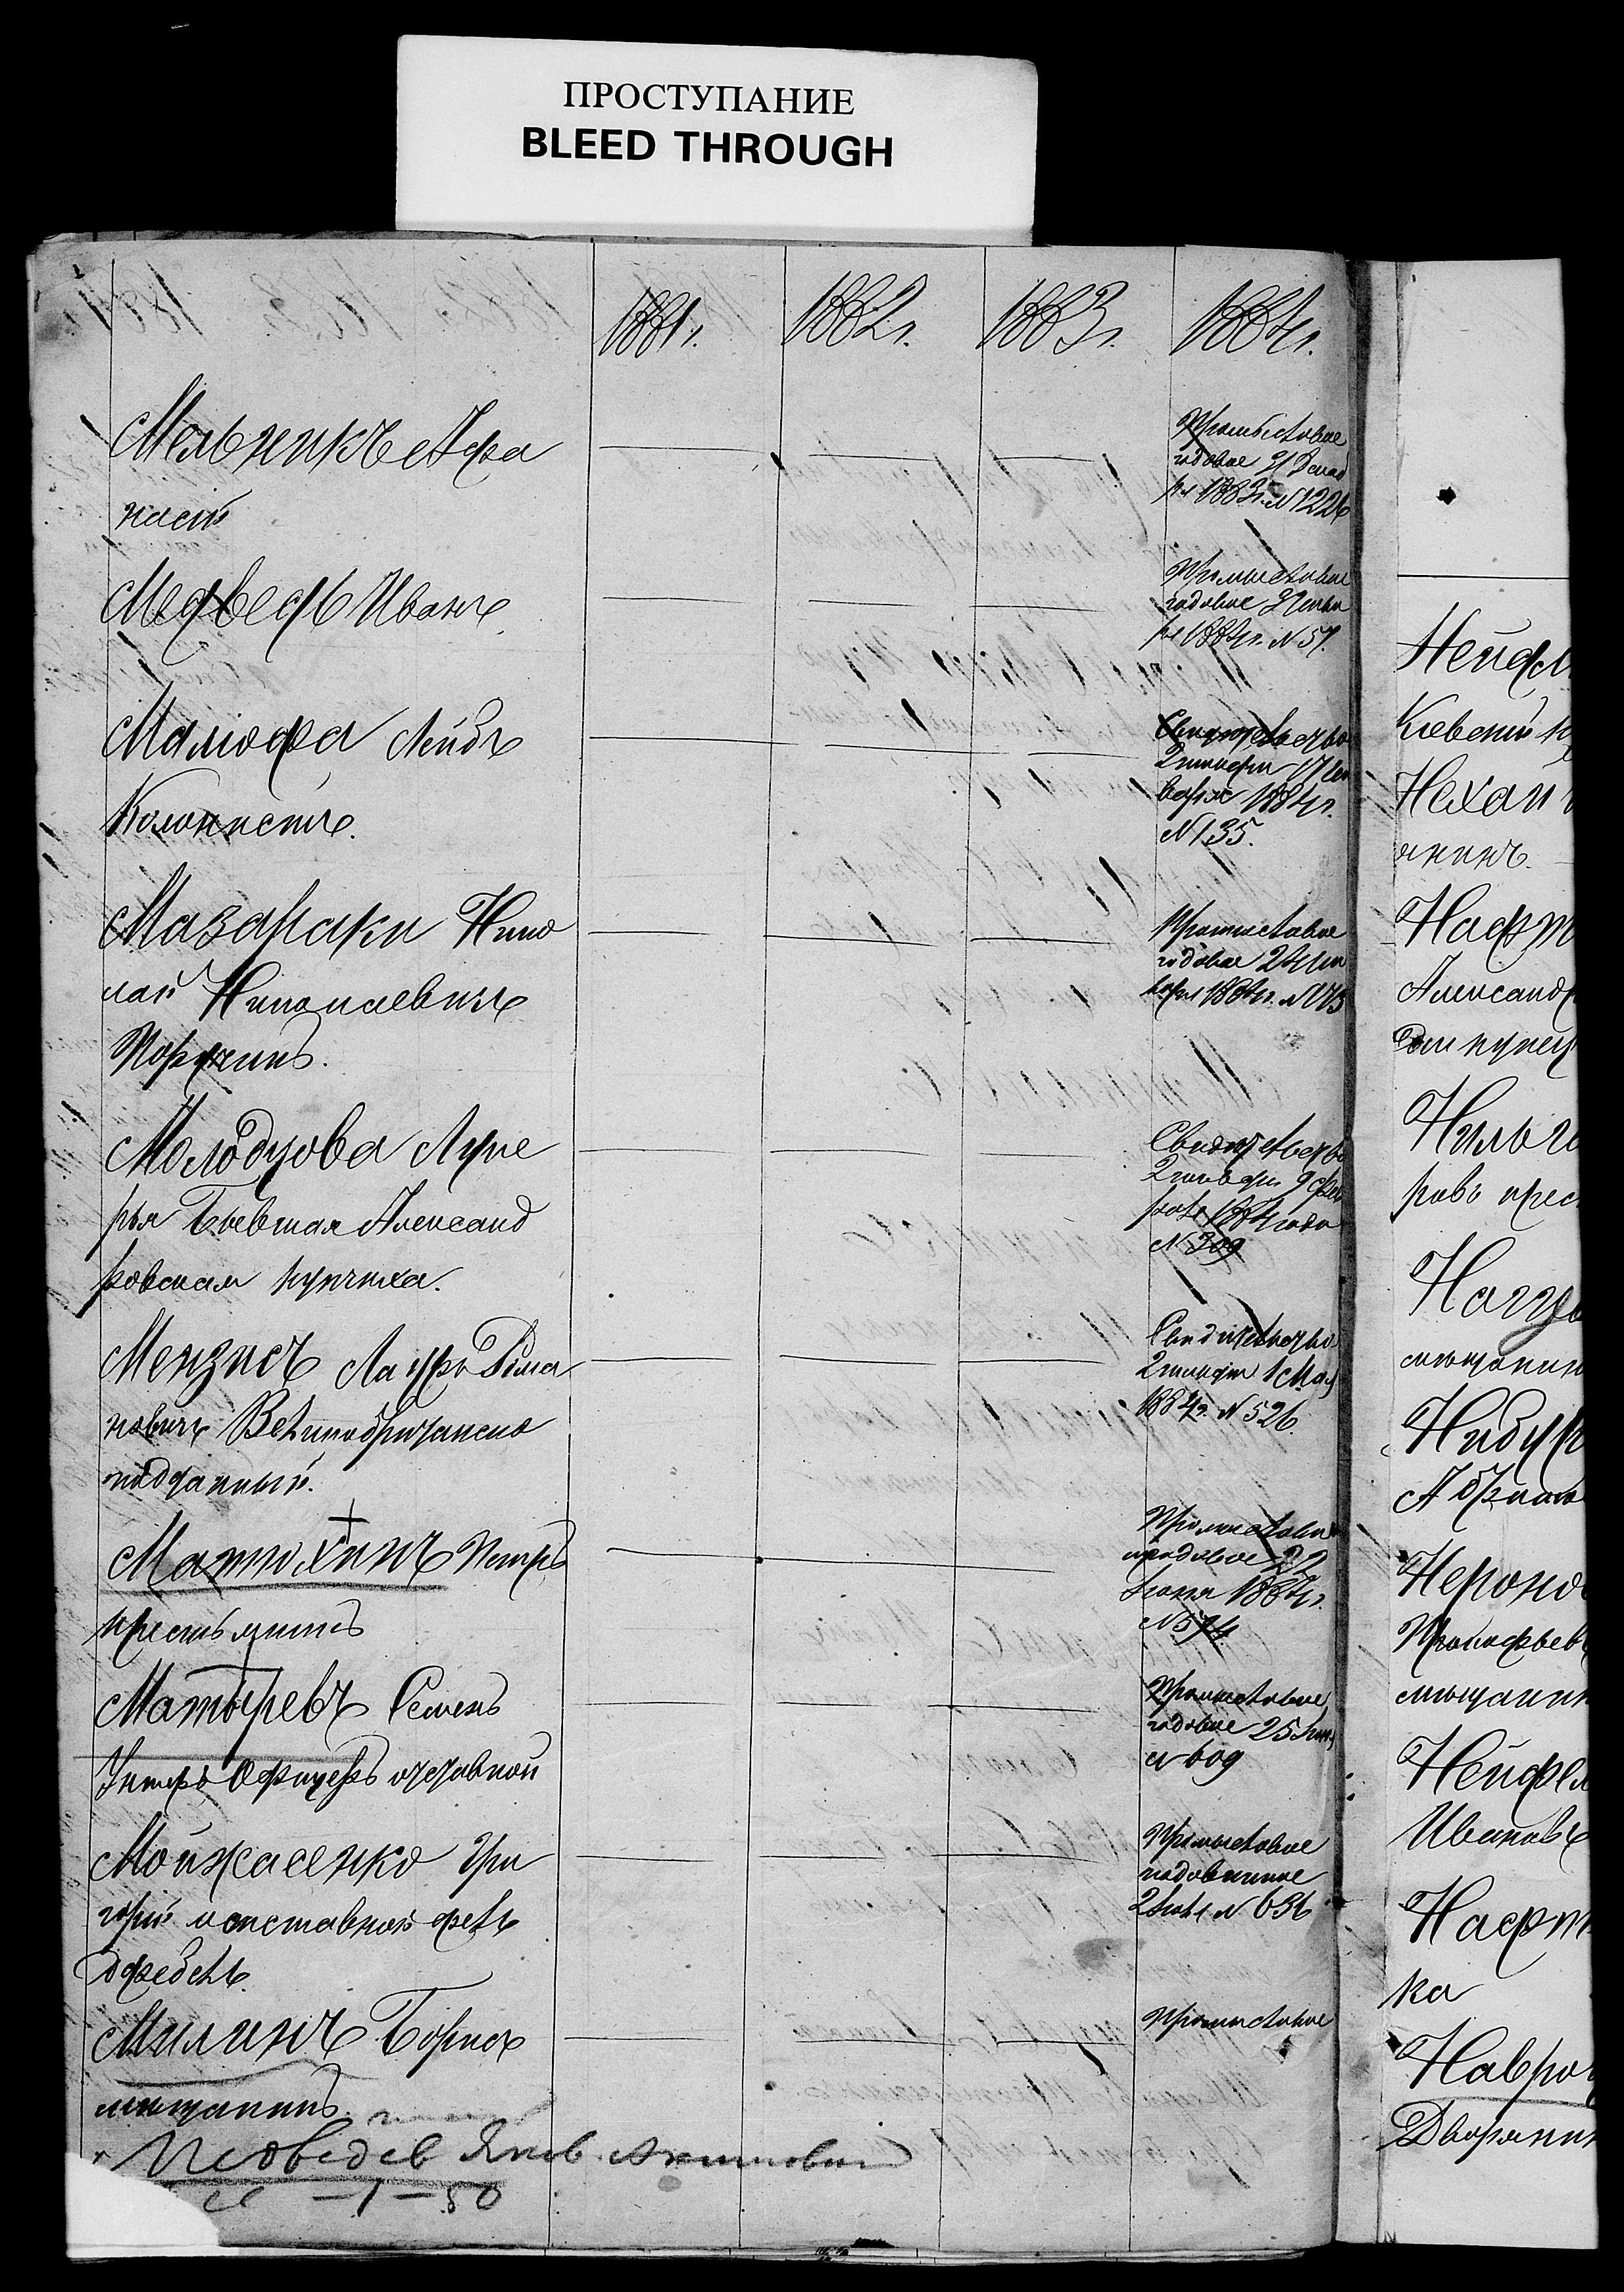 ПРОСТУПАНИЕ
BLEED THROUGH
1881г. 1882г. 1883г. 1884г.
Мельникъ Афа
насій
Промысловое
годовое 31 Декаб
ря 1883г. N 1226
Медведь Иванъ
Промысловое
годовое 3 Генва
ря 1884г. N 57.
Малюфа Лейбъ
Колонистъ.
Свидетельство
2 гильдіи 17 Ген
варя 1884г.
N 135.
Мазараки Нико
лай Николаевичъ
Поручикъ.
Промысловое
годовое 24 Ген
варя 1884г. N 173
Молодцова Луке
рья Бывшая Александ
ровская купчиха.
Свидетельство
2 гильдіи 9 Фев
раля 1884 года
N 309
Мензисъ Лауръ Рома
новичъ Великобританско
подданный.
Свидетельство
2 гильдіи 1 Мая
1884г. N 526.
Матюхинъ Петръ
крестьянинъ
Промысловое
22
Іюня 1884г.
N 574
Матыревъ Семенъ
Унтеръ Офицеръ отставной
Промысловое
годовое 25 Іюня
N 609
Мойжасенко Гри
горій отставной фель
дфебель.
Промысловое
2 Іюля N 636
Милинъ Борисъ
мещанинъ.
Промысловое
Медведев Яков Акимович
— 1 — 50
Кіевскій
Нехай
янинъ.
Нафт
Александр
Нильч
ровъ крес
мещанин
Абрам
Героно
Прокофьев
мещанин
Нейфел
Ивановъ
Нафт
ка
Навроц
Дворянин